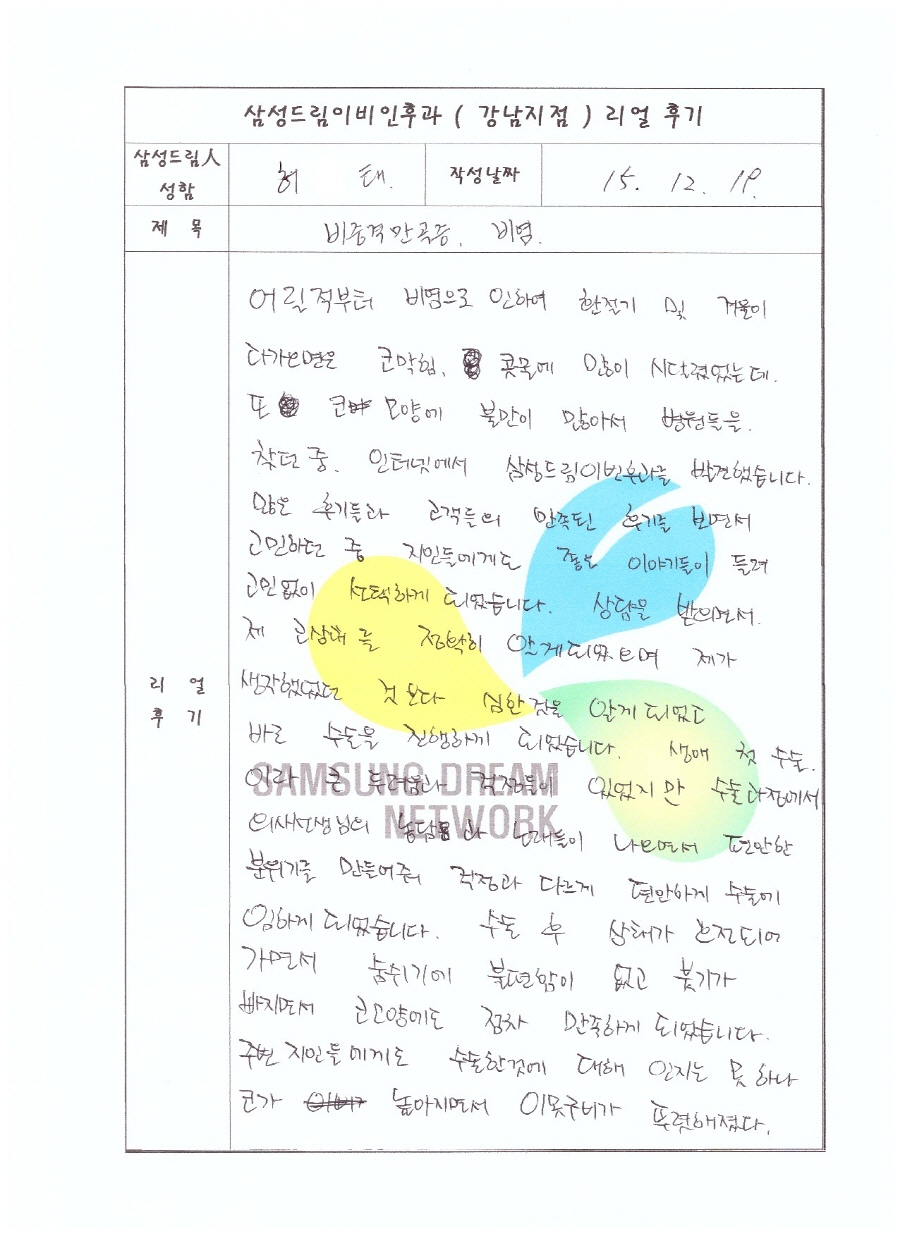 삼성드림이비인후과 ( 강남지점 ) 리얼 후기
삼성드림人 성함
허 태.
작성날짜
15. 12. 19.
제 목
비중격만곡증, 비염.
리 얼
후 기
어릴적부터 비염으로 인하여 환절기 및 겨울이
다가오면은 코막힘, 콧물에 많이 시달렸었는데.
또 코 모양에 불만이 많아서 병원들을.
찾던 중. 인터넷에서 삼성드림이빈후과를 발견했습니다.
많은 후기들과 고객들의 만족된 후기를 보면서
고민하던 중 지인들에게도 좋은 이야기들이 들려
고민없이 선택하게 되었습니다. 상담을 받으면서.
제 코상태를 정확히 알게되었으며 제가
생각했었던 것 보다 심한것을 알게 되었고
바로 수술을 진행하게 되었습니다. 생애 첫 수술.
이라 큰 두려움과 걱정들이 있었지만 수술과정에서
의사선생님의 농담과 노래들이 나오면서 편안한
분위기를 만들어줘 걱정과 다르게 편안하게 수술에
임하게 되었습니다. 수술 후 상태가 호전되어
가면서 숨쉬기에 불편함이 없고 붓기가
빠지면서 코모양에도 점차 만족하게 되었습니다.
주변 지인들에게도 수술한것에 대해 인지는 못 하나
코가 높아지면서 이목구비가 뚜렷해졌다.
SAMSUNG DREAM
NETWORK